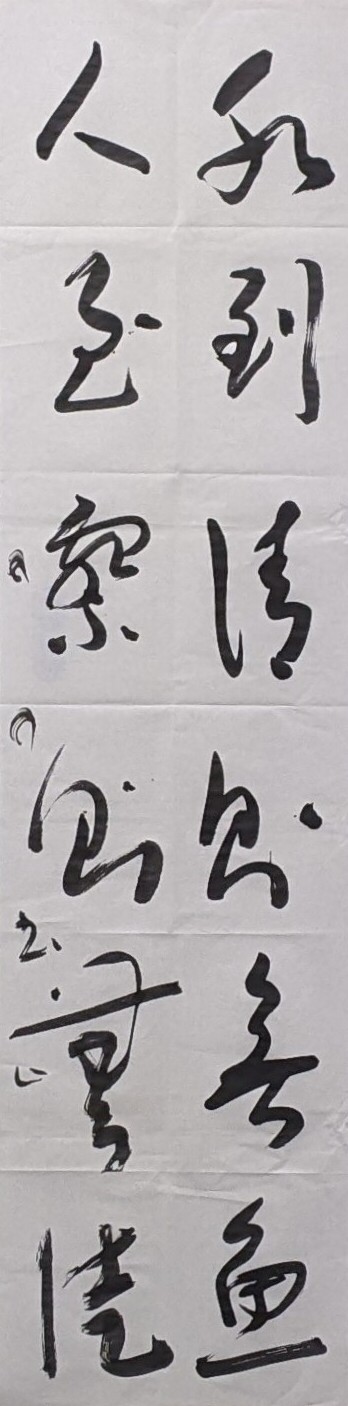 水到清則無魚
人至察則無徒